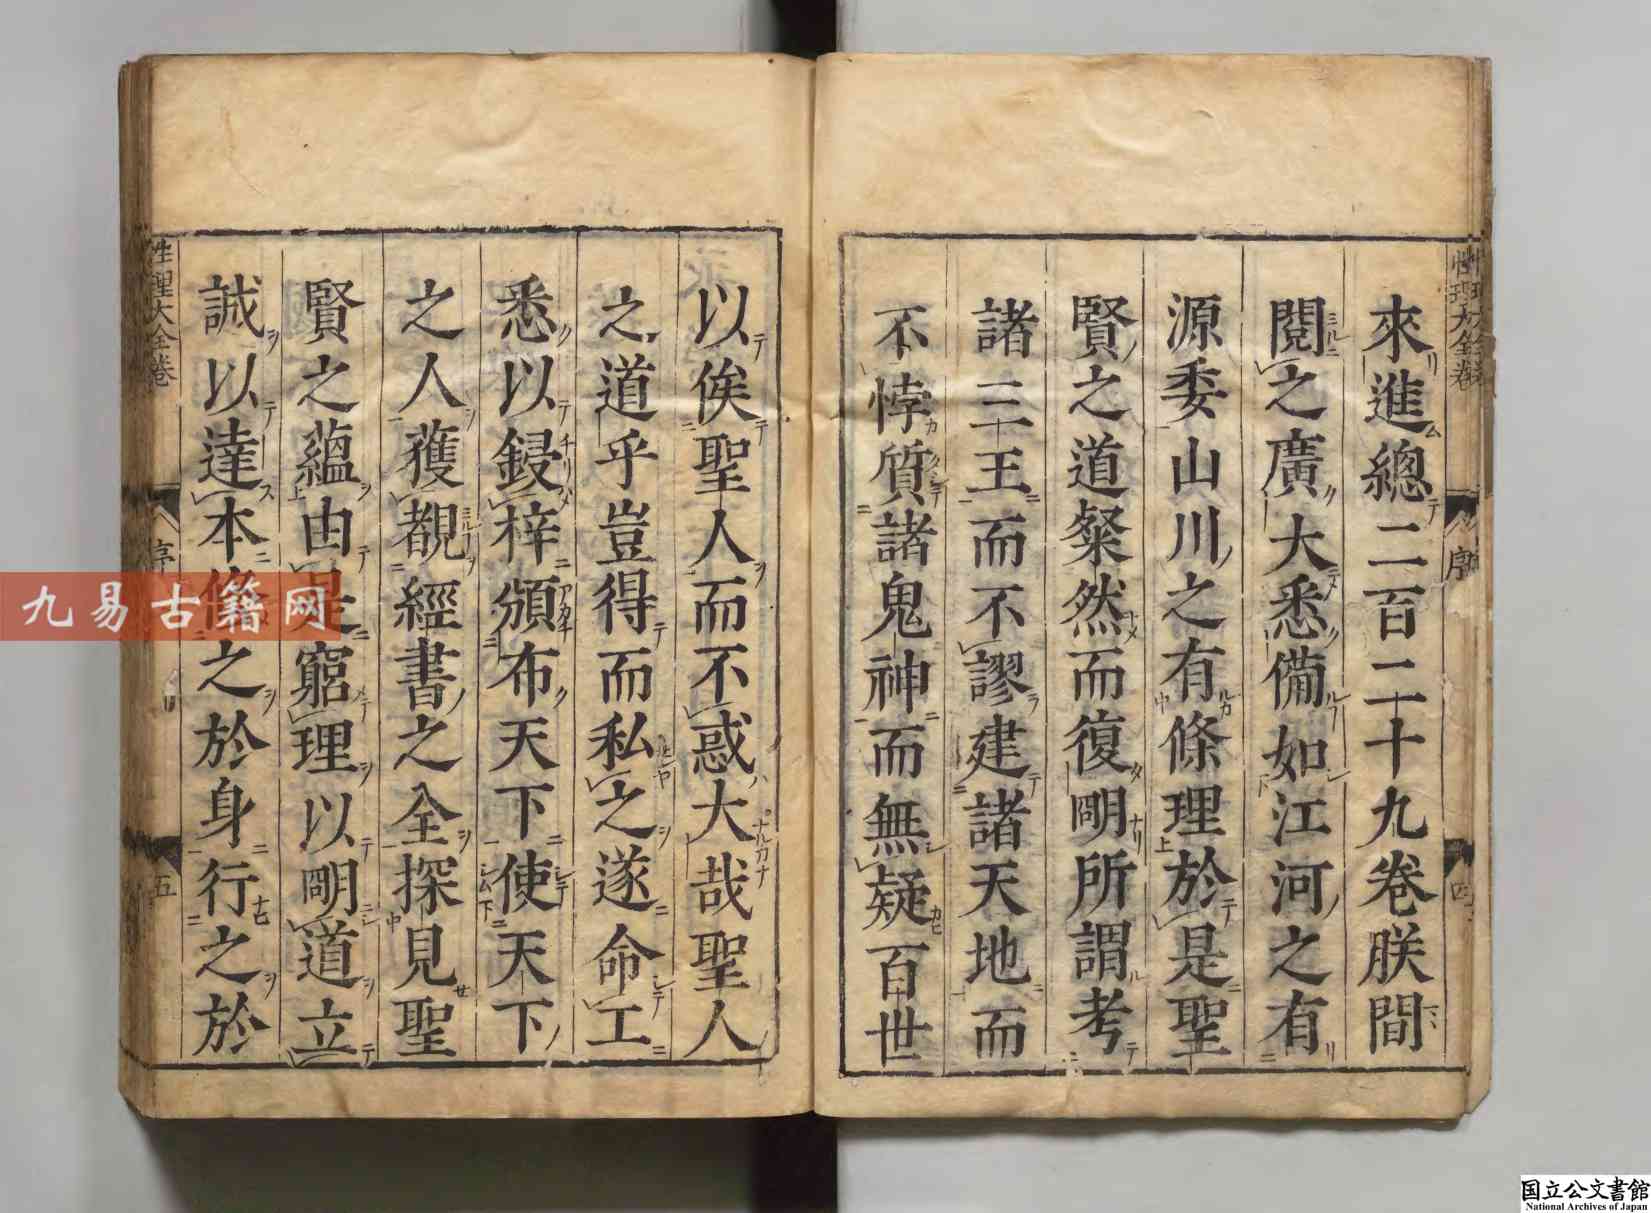 來進總二百二十九卷朕間
閱之廣大悉備如江河之有
源委山川之有條理於是聖
賢之道粲然而復明所謂考
諸三王而不謬建諸天地而
不悖質諸鬼神而無疑百世
以俟聖人而不惑大哉聖人
之道乎豈得而私之遂命工
悉以鋟梓頒布天下使天下
之人獲覩經書之全探見聖
賢之蘊由是窮理以明道立
誠以達本脩之於身行之於
性理大全卷
序
四
性理大全卷
序
五
九易古籍网
国立公文書館
National Archives of Japan